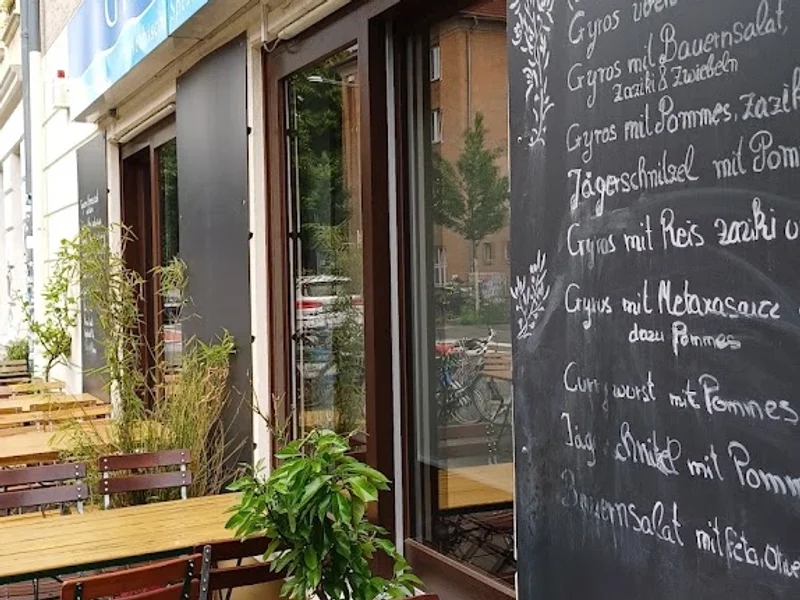 Gyros
Gyros mit Bauernsalat,
zaziki & Zwiebeln
Gyros mit Pommes, Zaziki
Jägerschnitsel mit Pom
Gyros mit Reis zaziki u
Gyros mit Metaxasauce
dazu Pommes
Currywurst mit Pommes
Jäg Schnitzel mit Pomm
Bauernsalat mit feta, Olive